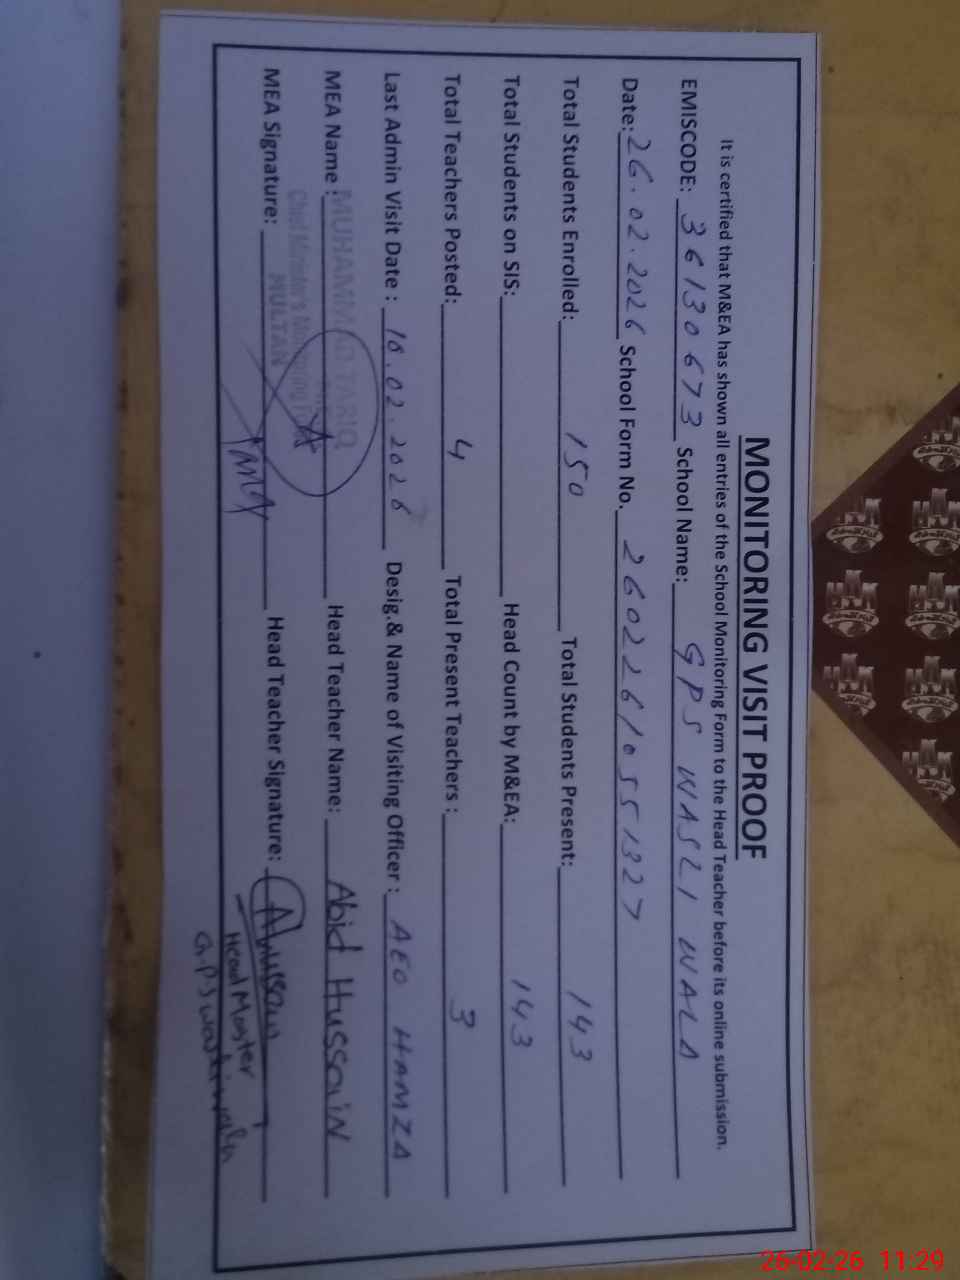 MONITORING VISIT PROOF
It is certified that M&EA has shown all entries of the School Monitoring Form to the Head Teacher before its online submission.
EMISCODE: 36130673 School Name: GPS WASLI WALA
Date: 26.02.2026 School Form No. 26022610551327
Total Students Enrolled: 150 Total Students Present: 143
Total Students on SIS: Head Count by M&EA: 143
Total Teachers Posted: 4 Total Present Teachers: 3
Last Admin Visit Date: 18.02.2026 Desig.& Name of Visiting Officer: AEO HAMZA
MEA Name: MUHAMMAD TARIQ Head Teacher Name: Abid Hussain
Chief Minister's Monitoring
MULTAN
MEA Signature: Head Teacher Signature: AHussain
Head Master
G.P.S
26-02-26 11:29